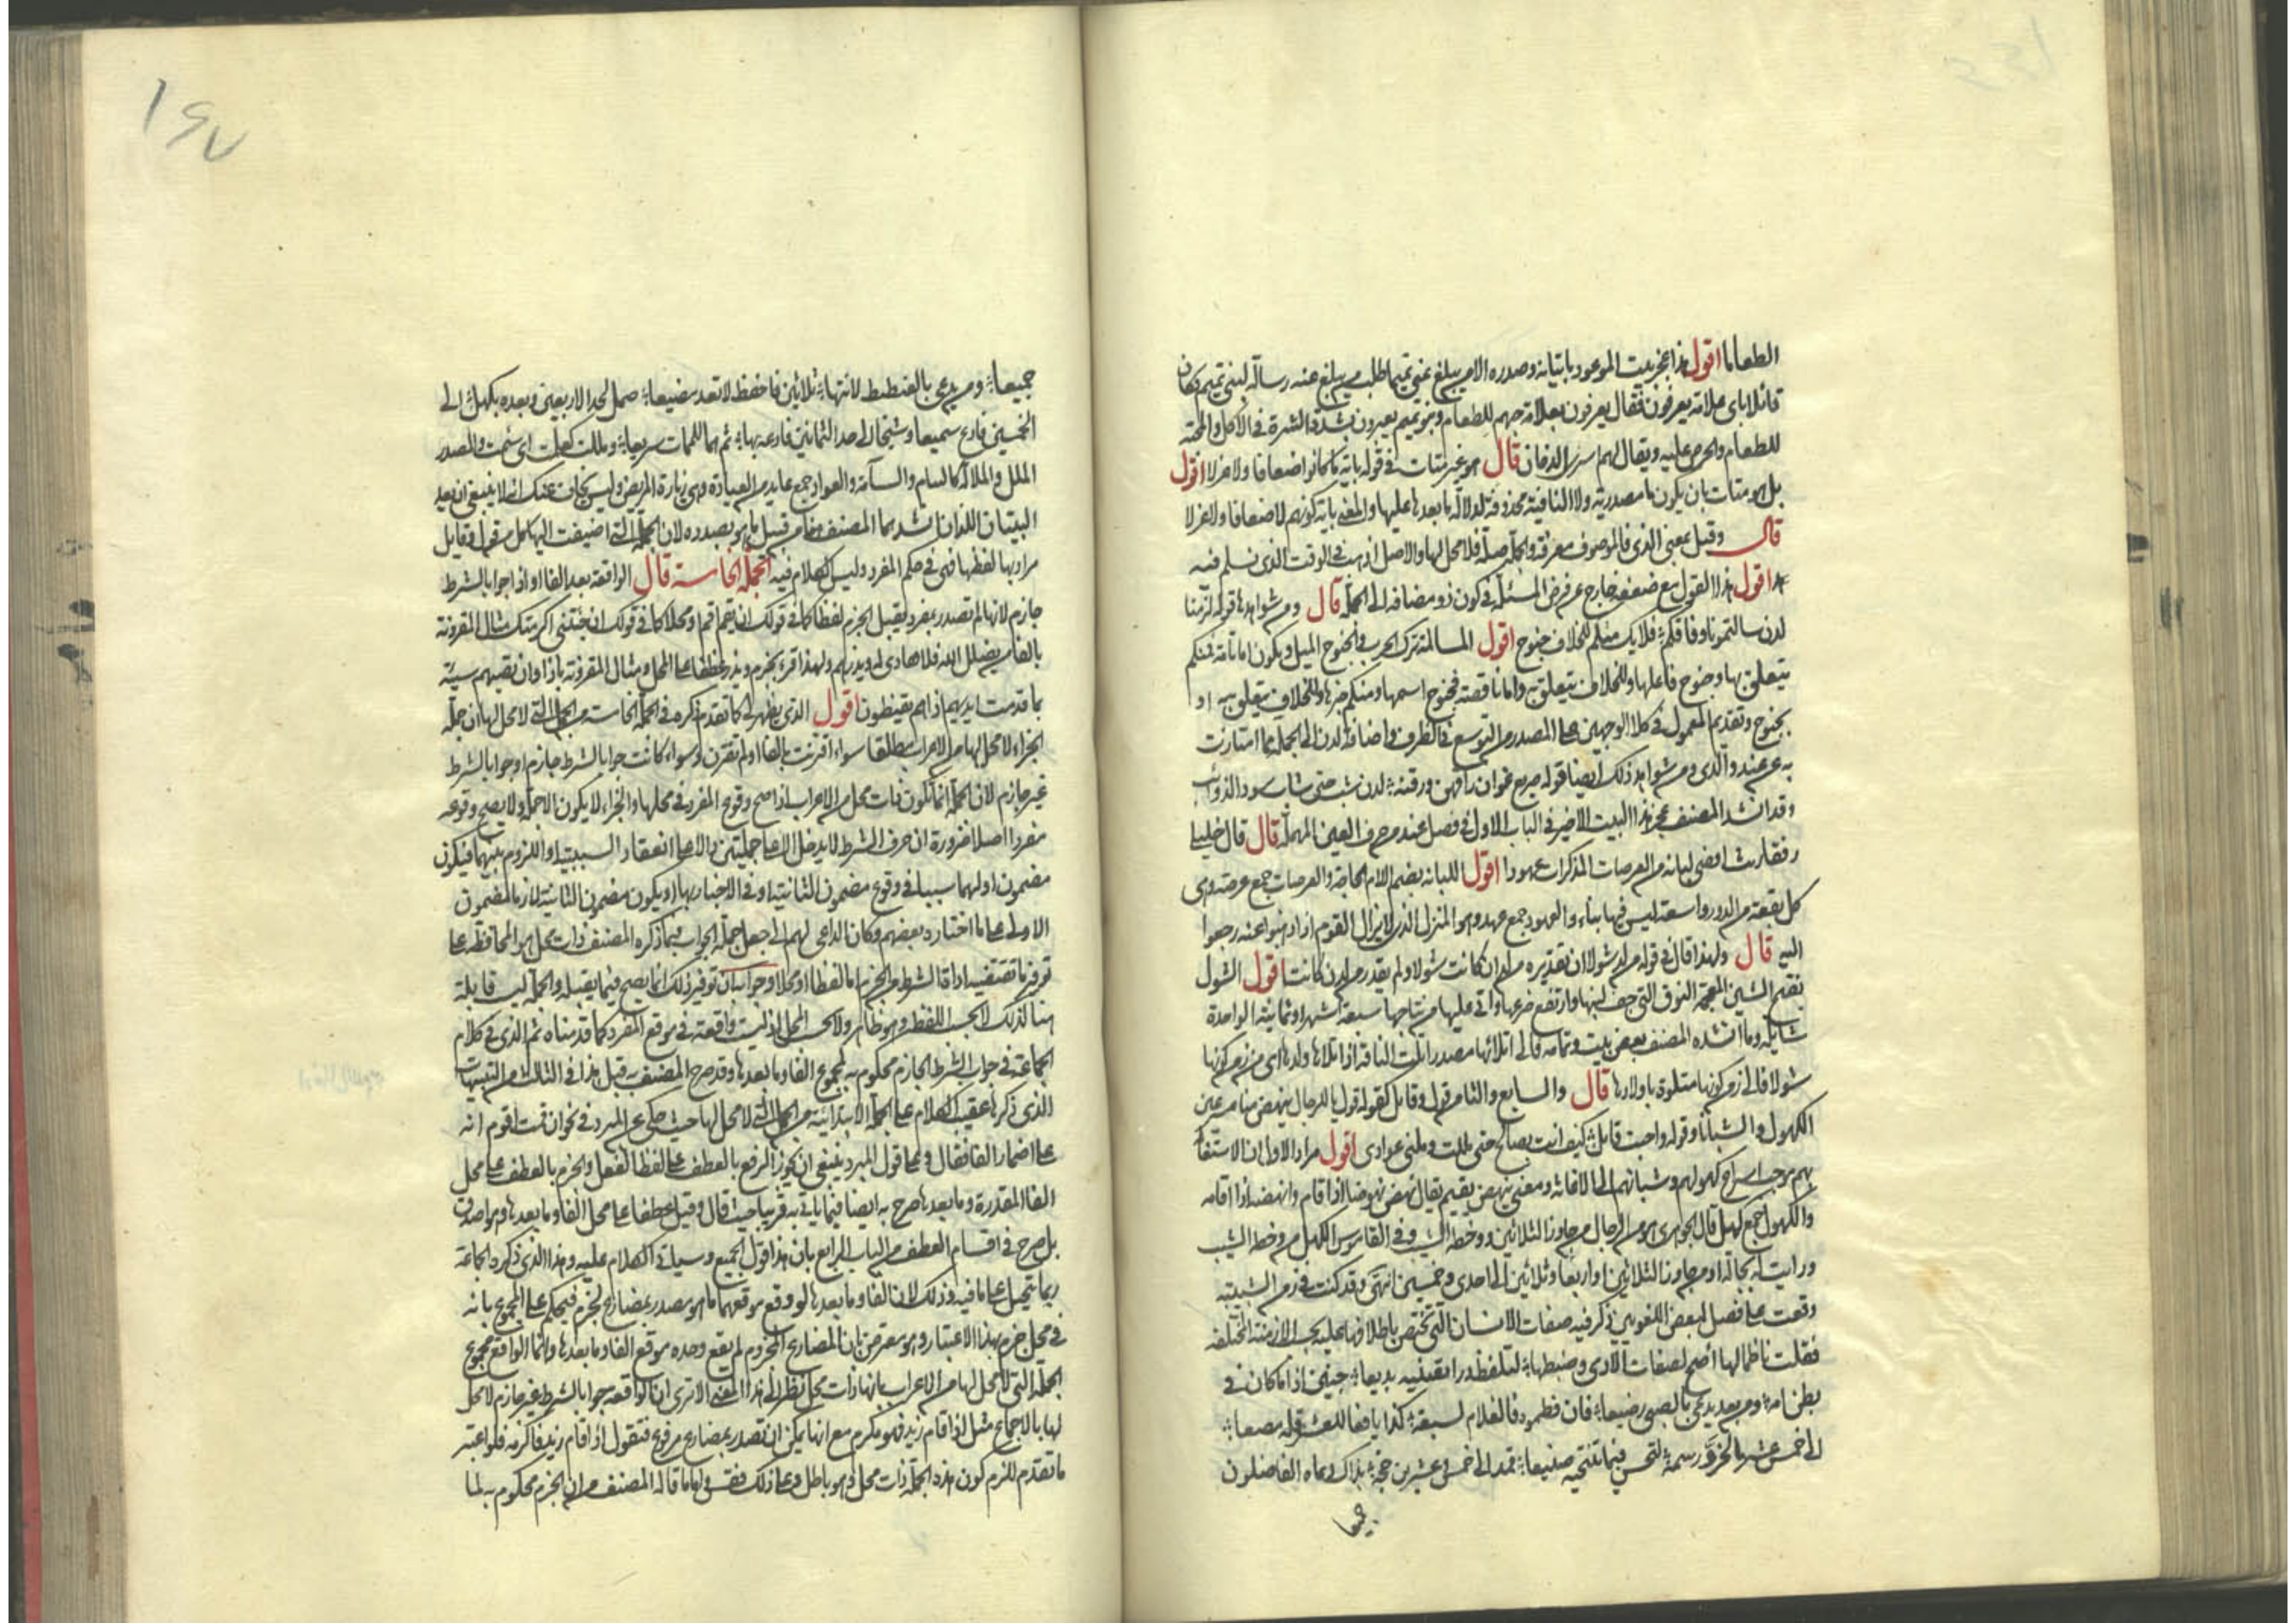 الطعاما اقول هذا عجز بيت الموعود باتيانه وصدره الا من يبلغ عني تميما طلب من يبلغ عنه رسالة لبني تميم فكان
قائلا باي علامة يعرفون فقال يعرفون بعلامة حبهم للطعام وبنو تميم يعيرون بشدة الشره في الاكل والمحبة
للطعام والحرص عليه ويقال لهم اسرى الدخان قال هو غير متات في قوله باية ما كانوا ضعافا ولا عزلا اقول
بل هو متات بان يكون ما مصدرية ولا النافية محذوفة لدلالة ما بعدها عليها والمعنى باية كونهم لا ضعافا ولا عزلا
قال وقيل بمعنى الذي فالموصوف معرفة والجملة صلة فلا محل لها والاصل اذهب في الوقت الذي تسلم فيه
اقول هذا القول مع ضعفه خارج عن فرض المسئلة في كون ذو مضافة الى الجملة قال ومن شواهدها قوله لزمنا
لدن سالتمونا وفاقكم فلا يك منكم للخلاف جنوح اقول المسالمة ترك الحرب والجنوح الميل ويكون اما تامة فمنكم
يتعلق بها وجنوح فاعلها وللخلاف يتعلق به واما ناقصة فجنوح اسمها ومنكم خبرها وللخلاف يتعلق به او
بجنوح وتقديم المعمول في كلا الوجهين على المصدر من التوسع في الظرف واضافة لدن الى الجملة مما امتازت
به عن عند والذي ومن شواهد ذلك ايضا قوله صريع غوان راقهن ورقنه لدن شب حتى شاب سود الذوائب
وقد انشد المصنف عجز هذا البيت الاخير في الباب الاول في فصل عند من حرف العين المهملة قال قال خليليا
رفقا ريث اقضي لبانة من العرصات المذكرات عهودا اقول اللبانة بضم اللام الحاجة والعرصات جمع عرصة وهي
كل بقعة من الدور واسعة ليس فيها بناء والعهود جمع عهد وهو المنزل الذي لا يزال القوم اذا ذهبوا عنه رجعوا
اليه قال ولهذا قال في قوله من لد شولا ان تقديره من لد ان كانت شولا ولم يقدر من لدن كانت اقول الشول
بفتح الشين المعجمة النوق التي جف لبنها وارتفع ضرعها واتى عليها من نتاجها سبعة اشهر او ثمانية الواحدة
شايلة وما انشده المصنف بعض بيت وتمامه فالى اتلائها مصدر اتلت الناقة اذا تلاها ولدها اي من زمن كونها
شولا فالى زمن كونها متلوة باولادها قال والسابع والثامن قول وقايل كقوله قول يا للرجال ينهض منا مسرعين
الكهول والشبانا وقوله واجبت قايل كيف انت بصالح حتى مللت وملني عوادي اقول مراد الاول ان الاستغاثة
بهم يوجب اسراع كهولهم وشبانهم الى الاغاثة ومعنى ينهض يقيم يقال نهض نهوضا اذا قام وانهضه اذا اقامه
والكهول جمع كهل قال الجوهري هو من الرجال من جاوز الثلاثين ووخطه الشيب وفي القاموس الكهل من وخطه الشيب
ورايت له بجالة او من جاوز الثلاثين او اربعا وثلاثين الى احدى وخمسين انتهى وقد كنت في زمن الشبيبة
وقفت على فصل لبعض اللغويين ذكر فيه صفات الانسان التي تختص باطلاقها عليه بحسب الازمنة المختلفة
فقلت ناظما لها اصخ لصفات الآدمي وضبطها لتلفظ درا تقتنيه بديعا جنين اذا ما كان في
بطن امه ومن بعد يدعى بالصبي رضيعا فان فطموه فالغلام لسبعة كذا يافعا للعشر قله مصيعا
الى خمس عشر بالحزور سمه لتحسن فيما تنتحيه صنيعا فمد الى خمس وعشرين حجة بذاك دعاه الفاضلون
جميعا
جميعا ومن يدعى بالعنطنط لانتهاء ثلاثين فاحفظ لا تعد مضيعا صمل لحد الاربعين وبعده بكهل الى
الخمسين فادع سميعا وشيخا الى حد الثمانين فادعه بها ثم هما للممات سريعا ومللت كعلمت اي سئمت والمصدر
الملل والملالة كالسام والسآمة والعواد جمع عايد من العيادة وهي زيارة المريض وليس بخاف عنك انه لا ينبغي ان يعد
البيتان اللذان انشدهما المصنف هنا من قبيل ما هو بصدده لان الجملة التي اضيفت اليها كل من قول وقايل
مراد بها لفظها فهي في حكم المفرد وليس الكلام فيه الجملة الخامسة قال الواقعة بعد الفا او اذا جوابا لشرط
جازم لانها لم تصدر بمفرد يقبل الجزم لفظا كما في قولك ان تقم اقم او محلا كما في قولك ان جئتني اكرمتك مثال المقرونة
بالفا من يضلل الله فلا هادي له ويذرهم ولهذا قرئ بجزم ويذر عطفا على المحل ومثال المقرونة باذا وان تصبهم سيئة
بما قدمت ايديهم اذا هم يقنطون اقول الذي يظهر لي كما تقدم ذكره في الجملة الخامسة من الجمل التي لا محل لها ان جملة
الجزاء لا محل لها من الاعراب مطلقا سواء اقترنت بالفا او لم تقترن وسواء كانت جوابا لشرط جازم او جوابا لشرط
غير جازم لان الجملة انما تكون ذات محل من الاعراب اذا صح وقوع المفرد في محلها والجزاء لا يكون الا جملة ولا يصح وقوعه
مفردا اصلا ضرورة ان حرف الشرط لا يدخل الا على جملتين دالا على انعقاد السببية او اللزوم بينهما فيكون
مضمون اولهما سببا في وقوع مضمون الثانية او في الاخبار بها او يكون مضمون الثانية لازما لمضمون
الاولى على ما اختاره بعضهم وكان الداعي لهم الى جعل جملة الجواب فيما ذكره المصنف ذات محل هو المحافظة على
توفر ما تقتضيه اداة الشرط من الجزم اما لفظا او محلا وجوابه ان توفير ذلك انما يصح فيما يقبله والجملة ليست قابلة
هنا لذلك لا بحسب اللفظ وهو ظاهر ولا بحسب المحل اذ ليست واقعة في موقع المفرد كما قدمناه ثم الذي في كلام
الجماعة في جواب الشرط الجازم محكوم به لمجموع الفا وما بعدها وقد صرح المصنف به قبل هذا في الثالث من التنبيهات
الذي ذكرها عقيب الكلام على الجملة الابتدائية من الجمل التي لا محل لها حيث حكى عن المبرد في نحو ان قمت اقوم انه
على اضمار الفا فقال وعلى قول المبرد ينبغي ان يجوز الرفع بالعطف على لفظ الفعل والجزم بالعطف على محل
الفا المقدرة وما بعدها صرح به ايضا فيما ياتي به قريبا حيث قال وقيل عطفا على محل الفا وما بعدها وهو اصدق
بل صرح في اقسام العطف من الباب الرابع بان هذا قول الجميع وسياتي الكلام عليه وهذا الذي ذكره الجماعة
ربما يتخيل على ما فيه وذلك لان الفا وما بعدها لو وقع موقعهما ما هو مصدر بمضارع لجزم فيحكم على المجموع بانه
في محل جزم بهذا الاعتبار وهو معترض بان المضارع المجزوم لم يقع وحده موقع الفا وما بعدها وانما الواقع مجموع
الجملة التي لا محل لها من الاعراب بانها ذات محل نظرا الى هذا المعنى الا ترى ان الواقعة جوابا لشرط غير جازم لا محل
لها بالاجماع مثل اذا قام زيد فهو مكرم مع انها يمكن ان تصدر بمضارع مرفوع فتقول اذا قام زيد فاكرمه فلو اعتبر
ما تقدم للزم كون هذه الجملة ذات محل وهو باطل وعلى ذلك فقس واما ما قاله المصنف من ان الجزم محكوم به لما